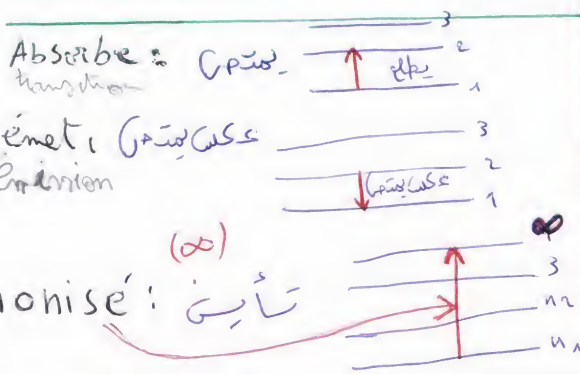 3
Absorbe : يمتص 2
transition يطلع 1
émet, عكس يمتص 3
Emission 2
عكس يمتص 1
(∞) ∞
ionisé : تأين 3
n2
n1